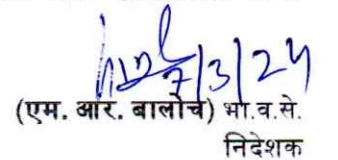 7/3/24
(एम. आर. बालोच) भा.व.से.
निदेशक